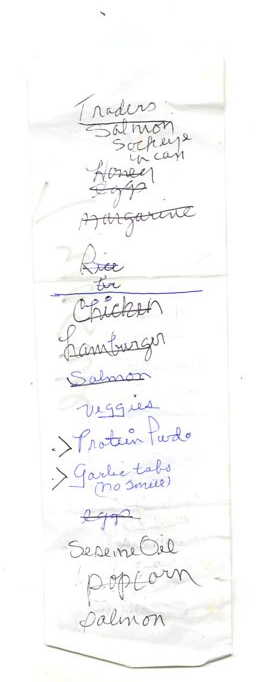 Traders
Salmon
Sockeye
in can
Honey
eggs
margarine
Rice
Chicken
hamburger
Salmon
veggies
Protein Pwdo
Garlic tabs
(no smell)
eggs
Seseme Oil
popcorn
Salmon